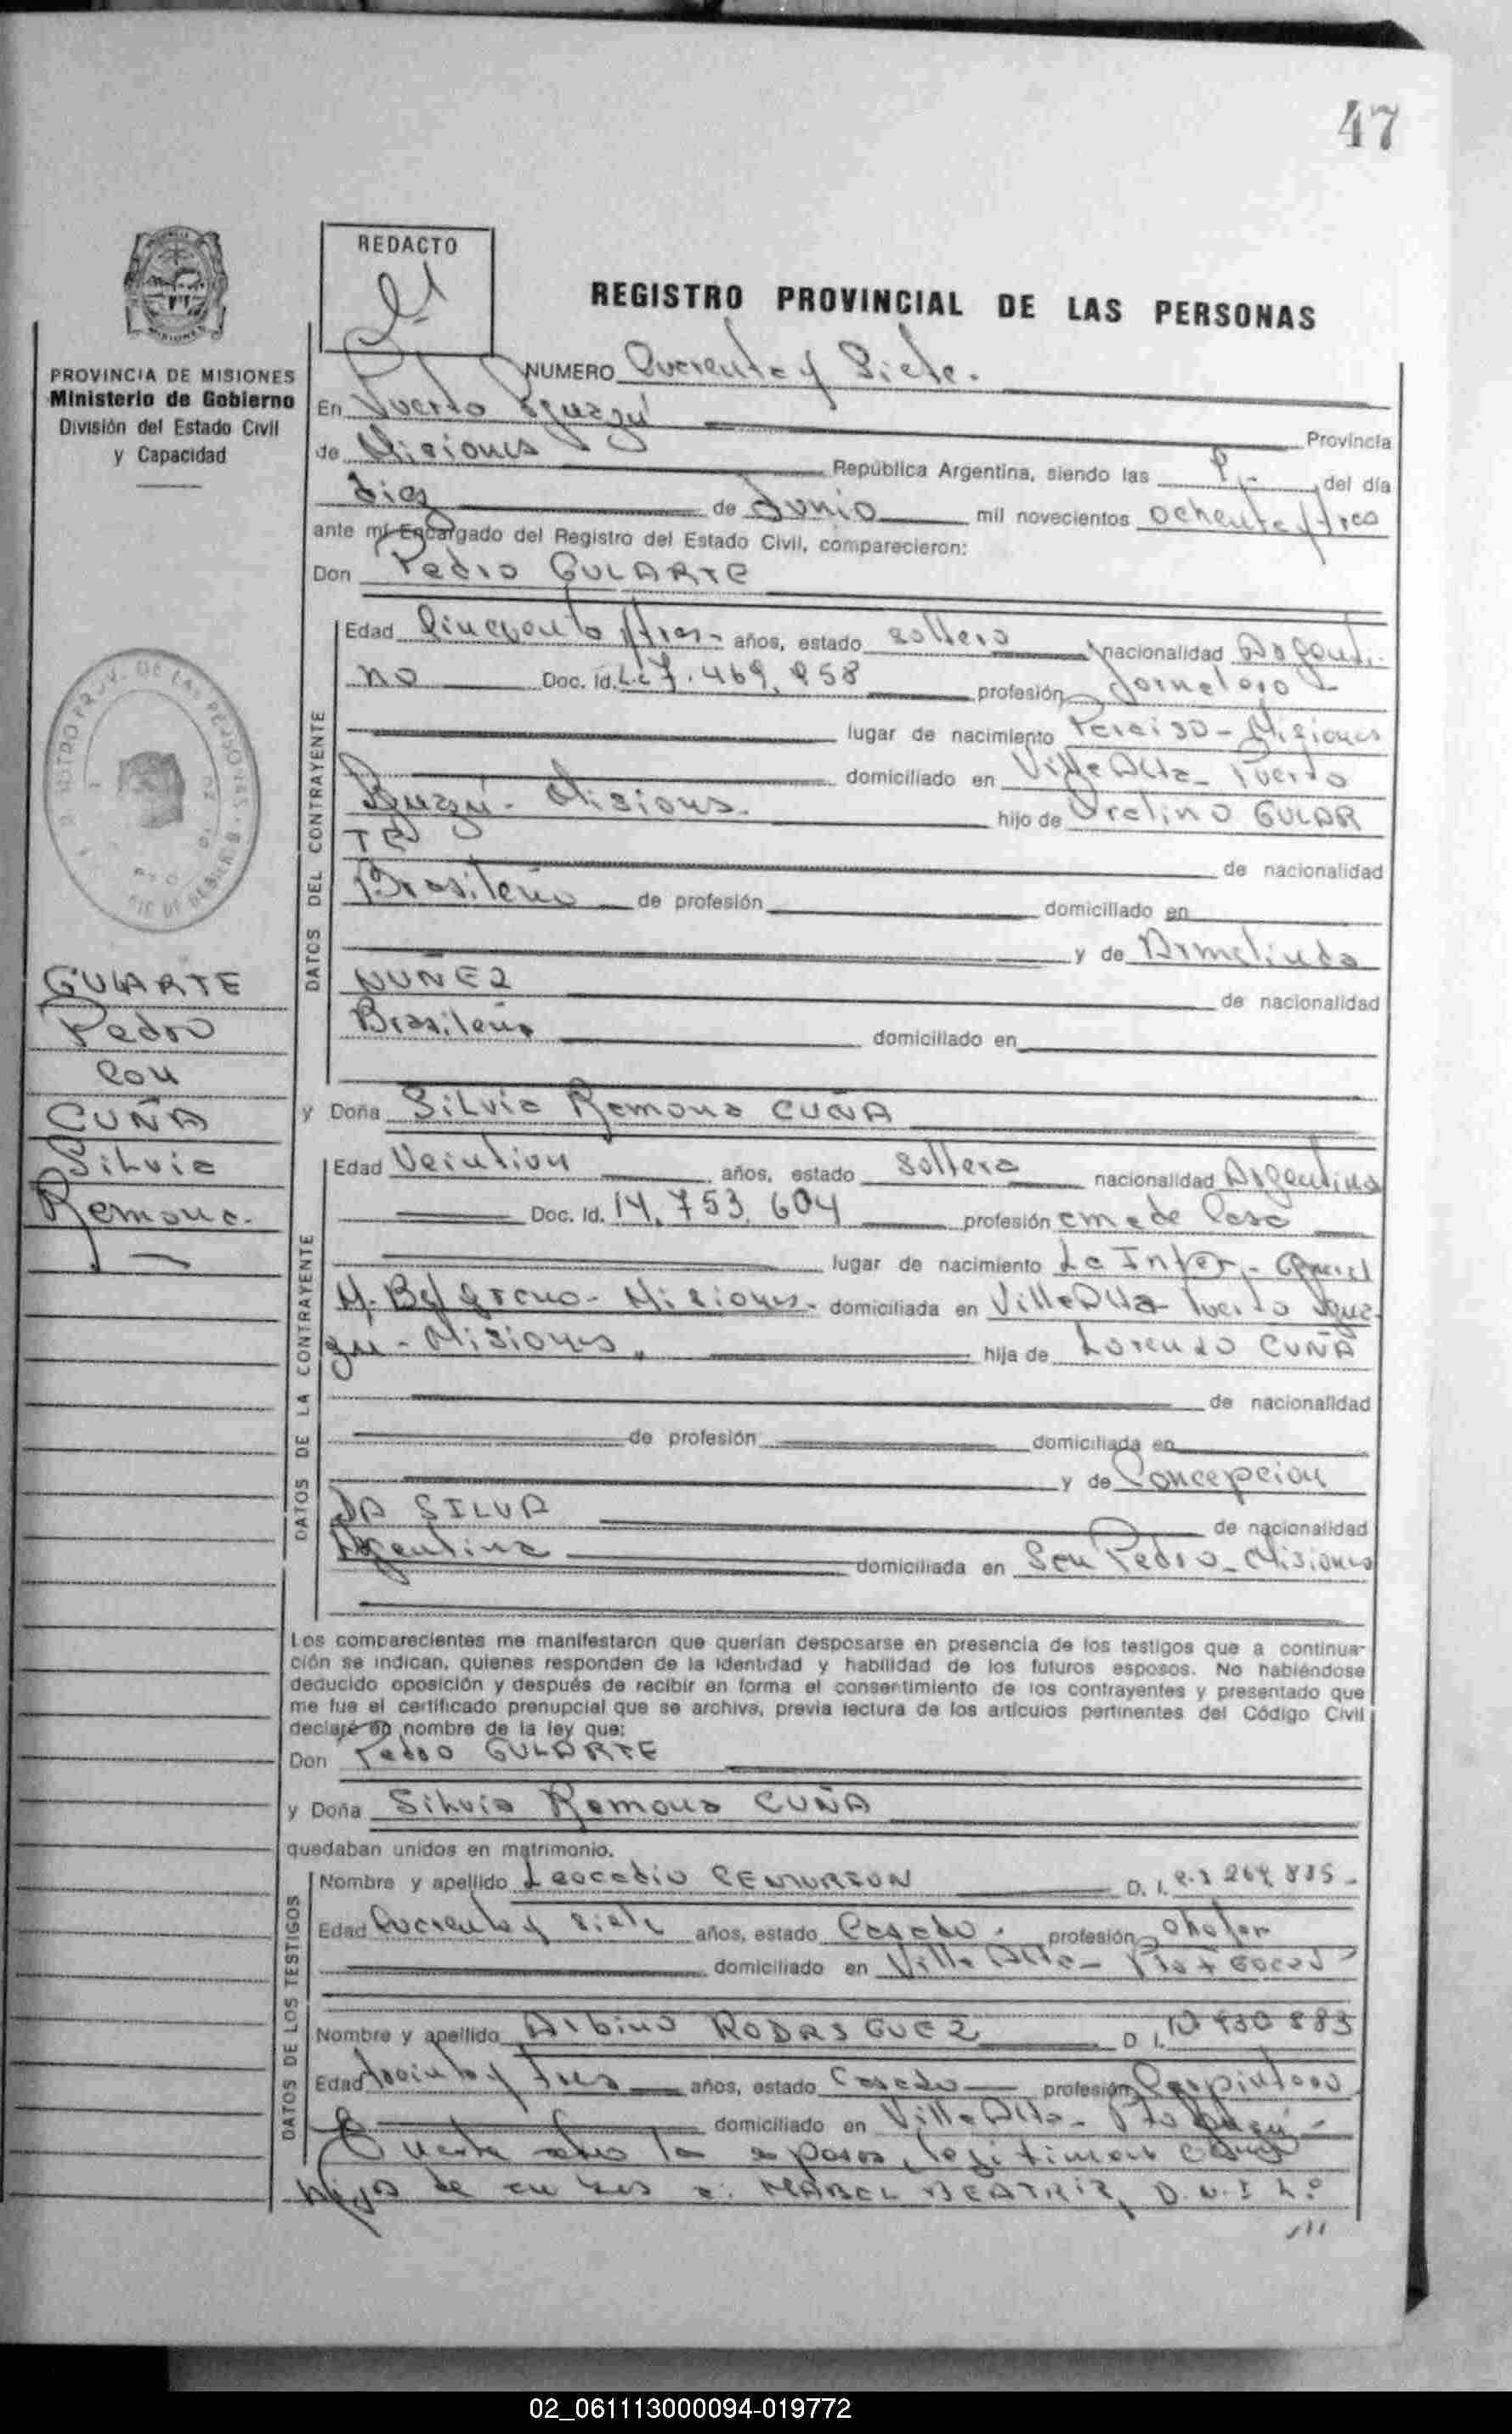 47
REDACTO
REGISTRO PROVINCIAL DE LAS PERSONAS
PROVINCIA DE MISIONES
Ministerio de Gobierno
División del Estado Civil
y Capacidad
NUMERO Cuarenta y Siete.
En Puerto Iguazú Provincia
de Misiones República Argentina, siendo las del día
diez de Junio mil novecientos ochenta y tres
ante mí Encargado del Registro del Estado Civil, comparecieron:
Don Pedro GULARTE
DATOS DEL CONTRAYENTE
Edad Cincuenta y tres- años, estado soltero nacionalidad Argenti-
no Doc. Id. profesión Jornalero
lugar de nacimiento Misiones
domiciliado en Villa Alta - Puerto
Iguazú - Misiones. hijo de GULAR
TE de nacionalidad
Brasileño de profesión domiciliado en
y de Armelinda
NUÑEZ de nacionalidad
Brasileña domiciliado en
GULARTE
Pedro
con
CUÑA
Silvia
Ramona.
y Doña Silvia Ramona CUÑA
DATOS DE LA CONTRAYENTE
Edad Veintiun años, estado soltera nacionalidad Argentina
Doc. Id. 14.753.604 profesión ama de Casa
lugar de nacimiento La Inter. - General
M. Belgrano - Misiones - domiciliada en Villa Alta - Puerto Igua-
zú - Misiones. hija de Lorenzo CUÑA
de nacionalidad
de profesión domiciliada en
y de Concepcion
DA SILVA de nacionalidad
Argentina domiciliada en San Pedro - Misiones
Los comparecientes me manifestaron que querían desposarse en presencia de los testigos que a continua-
ción se indican, quienes responden de la identidad y habilidad de los futuros esposos. No habiéndose
deducido oposición y después de recibir en forma el consentimiento de los contrayentes y presentado que
me fue el certificado prenupcial que se archiva, previa lectura de los artículos pertinentes del Código Civil
declaré en nombre de la ley que:
Don Pedro GULARTE
y Doña Silvia Ramona CUÑA
quedaban unidos en matrimonio.
DATOS DE LOS TESTIGOS
Nombre y apellido Leocadio D. I.
Edad Cuarenta y siete años, estado Casado. profesión chofer
domiciliado en Villa Alta -
Nombre y apellido Albino RODRIGUEZ D. I.
Edad treinta y tres años, estado Casado profesión Carpintero
domiciliado en Villa Alta - Pto Iguazú -
legitiman como
hijos de MABEL BEATRIZ, D.N.I.
02_061113000094-019772